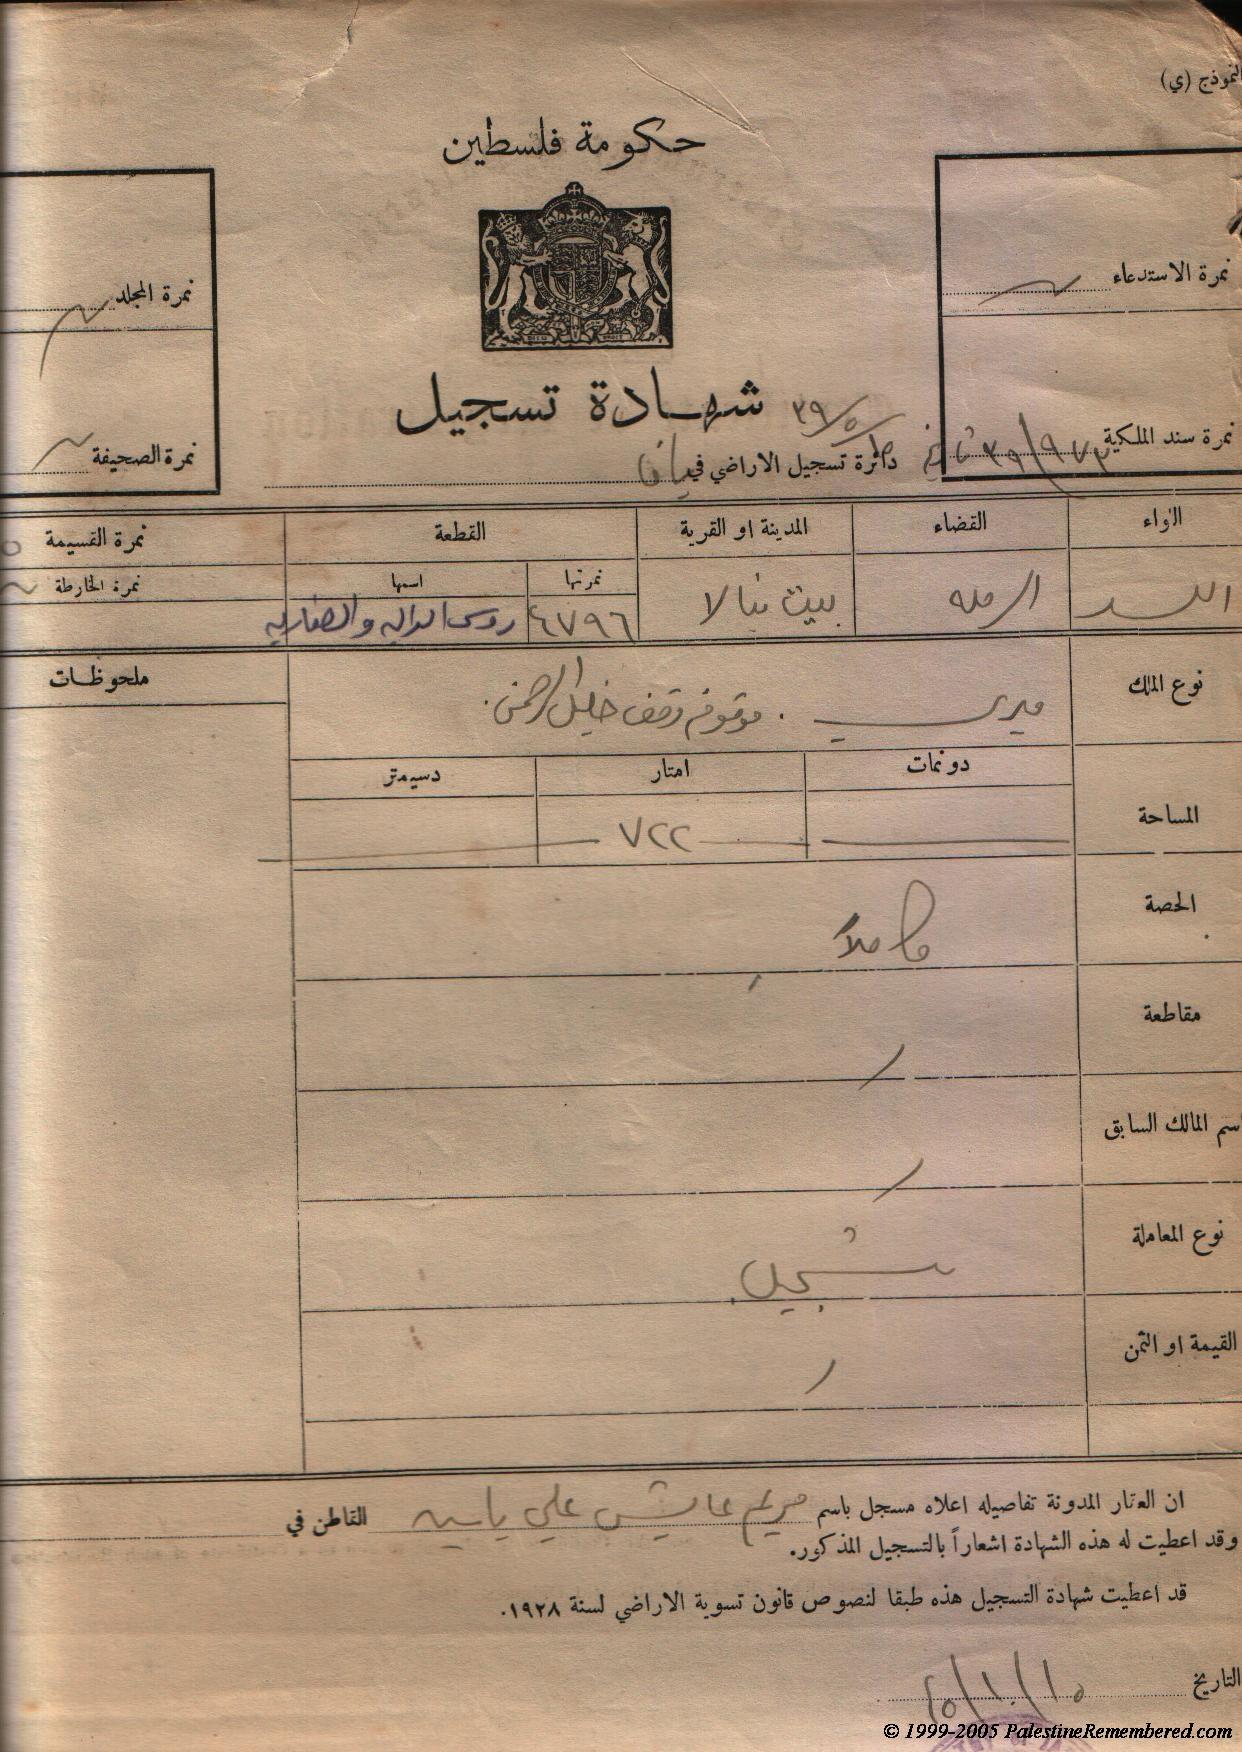 النموذج (ي)
حكومة فلسطين
نمرة الاستدعاء
نمرة المجلد
شهادة تسجيل
نمرة سند الملكية ٣٩/٩٧٣
نمرة الصحيفة
دائرة تسجيل الاراضي في يافا
اللواء القضاء المدينة او القرية القطعة نمرة القسيمة
نمرتها اسمها نمرة الخارطة
اللد الرمله بيت نبالا ٤٧٩٦
نوع الملك ميري . موقوفه وقف خليل الرحمن . ملحوظات
دونمات امتار دسيمتر
المساحة ٧٢٢
الحصة كاملاً
مقاطعة
اسم المالك السابق
نوع المعاملة تسجيل
القيمة او الثمن
ان العقار المدونة تفاصيله اعلاه مسجل باسم مريم عايش علي ياسين القاطن في
وقد اعطيت له هذه الشهادة اشعاراً بالتسجيل المذكور.
قد اعطيت شهادة التسجيل هذه طبقا لنصوص قانون تسوية الاراضي لسنة ١٩٢٨.
التاريخ
© 1999-2005 PalestineRemembered.com